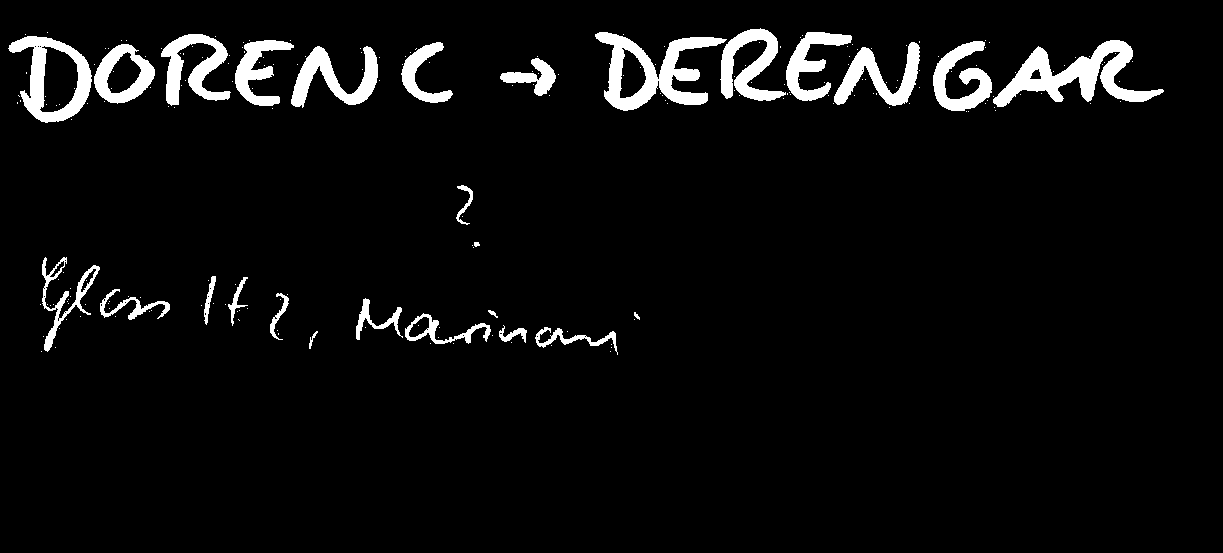 DORENC → DERENGAR
?
Glass 1+2, Marinoni